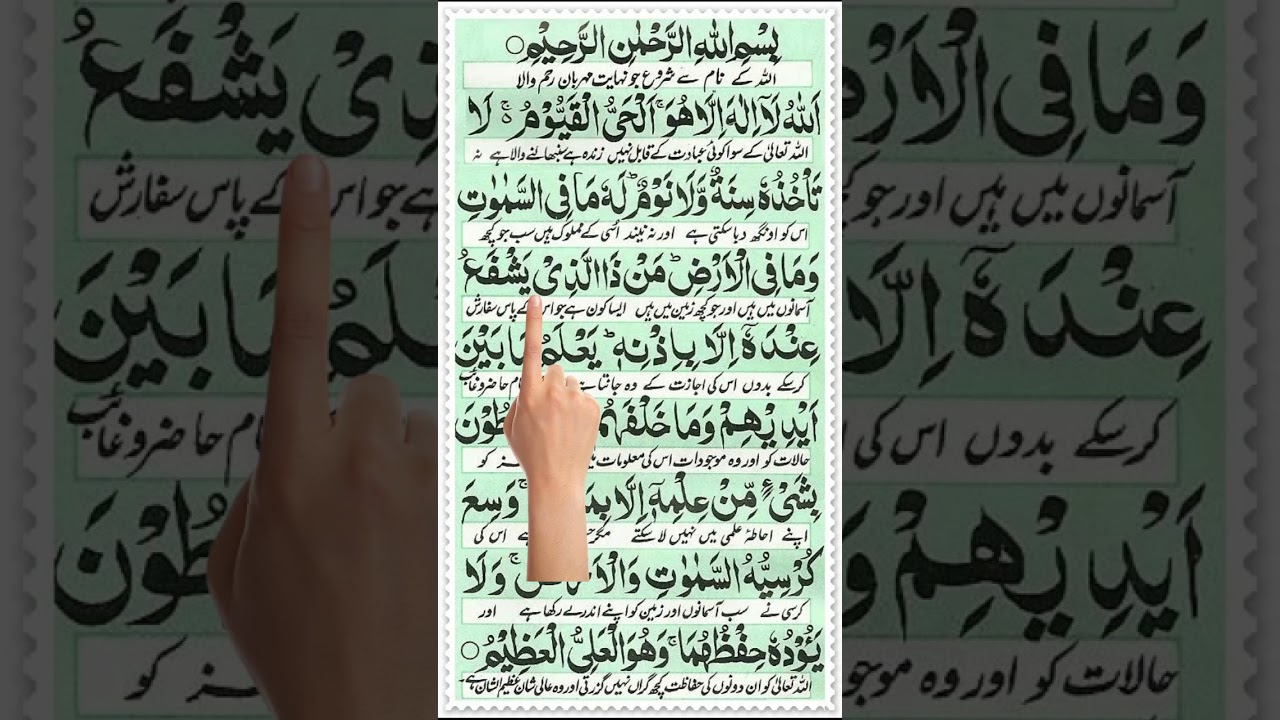 بِسْمِ اللّٰهِ الرَّحْمٰنِ الرَّحِيْمِ
اللہ کے نام سے شروع جو نہایت مہربان رحم والا
اَللّٰهُ لَآ اِلٰهَ اِلَّا هُوَ ۚ اَلْحَيُّ الْقَيُّوْمُ ۚ لَا
اللہ تعالیٰ کے سوا کوئی عبادت کے قابل نہیں زندہ ہے سنبھالنے والا ہے نہ
تَاْخُذُهٗ سِنَةٌ وَّلَا نَوْمٌ ؕ لَهٗ مَا فِي السَّمٰوٰتِ
اس کو اونگھ دبا سکتی ہے اور نہ نیند اُسی کے مملوک ہیں سب جو کچھ
وَمَا فِي الْاَرْضِ ؕ مَنْ ذَا الَّذِيْ يَشْفَعُ
آسمانوں میں ہیں اور جو کچھ زمین میں ہیں ایسا کون ہے جو اس کے پاس سفارش
عِنْدَهٗٓ اِلَّا بِاِذْنِهٖ ؕ يَعْلَمُ مَا بَيْنَ
کرسکے بدوں اس کی اجازت کے وہ جانتا ہے حاضر و غائب
اَيْدِيْهِمْ وَمَا خَلْفَهُمْ
حالات کو اور وہ موجودات اس کی معلومات میں کو
بِشَيْءٍ مِّنْ عِلْمِهٖٓ اِلَّا وَسِعَ
اپنے احاطۂ علمی میں نہیں لا سکتے مگر ہے اس کی
كُرْسِيُّهُ السَّمٰوٰتِ ۚ وَلَا
کرسی نے سب آسمانوں اور زمین کو اپنے اندر لے رکھا ہے اور
يَـُٔوْدُهٗ حِفْظُهُمَا ۚ وَهُوَ الْعَلِيُّ الْعَظِيْمُ
اللہ تعالیٰ کو ان دونوں کی حفاظت کچھ گراں نہیں گزرتی اور وہ عالی شان عظیم الشان ہے۔